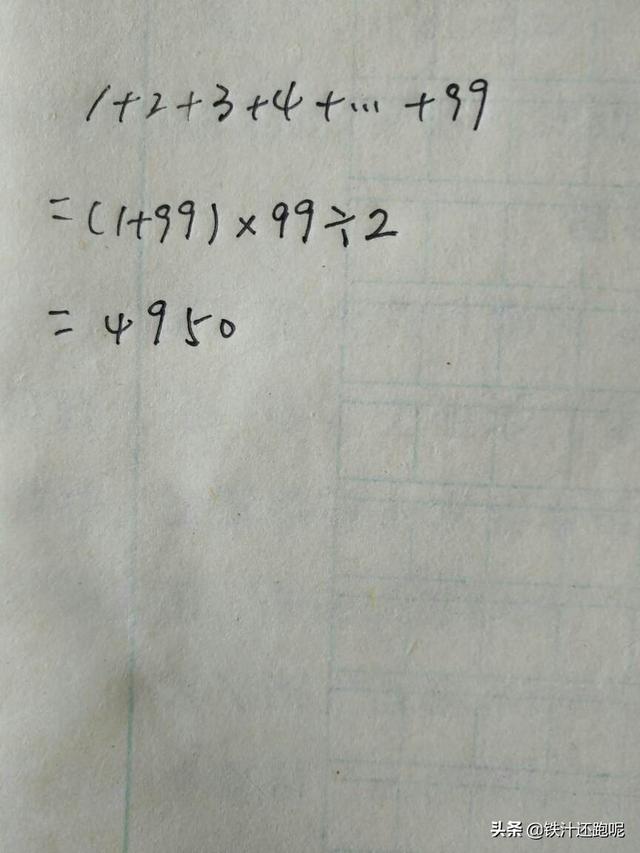 1+2+3+4+…+99
=(1+99)×99÷2
=4950
头条 @铁汁还跑呢